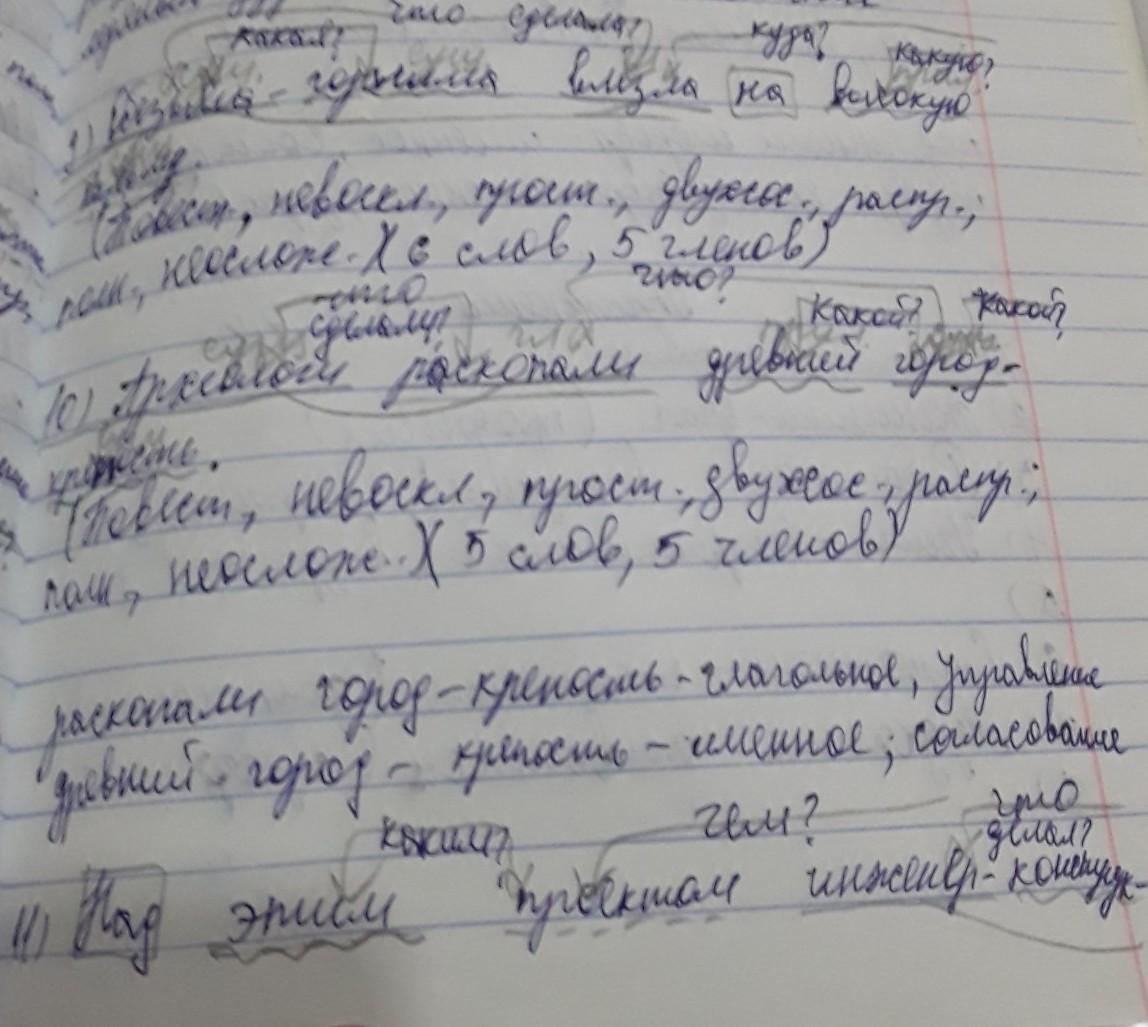 что сделала?
какая? куда? какую?
9) горилла влезла на высокую
(Повест., невоскл., прост., двухсос., распр.,;
полн., неослож.) (6 слов, 5 членов)
что чью?
сделали? какой? какой?
10) Археологи раскопали древний город-
крепость.
(Повест., невоскл., прост., двухсос., распр.,;
полн., неослож..) (5 слов, 5 членов)
раскопали город-крепость-глагольное, управление
древний город-крепость-именное, согласование
каким? чем? что
делал?
11) Над этим проектом инженер-конструк-